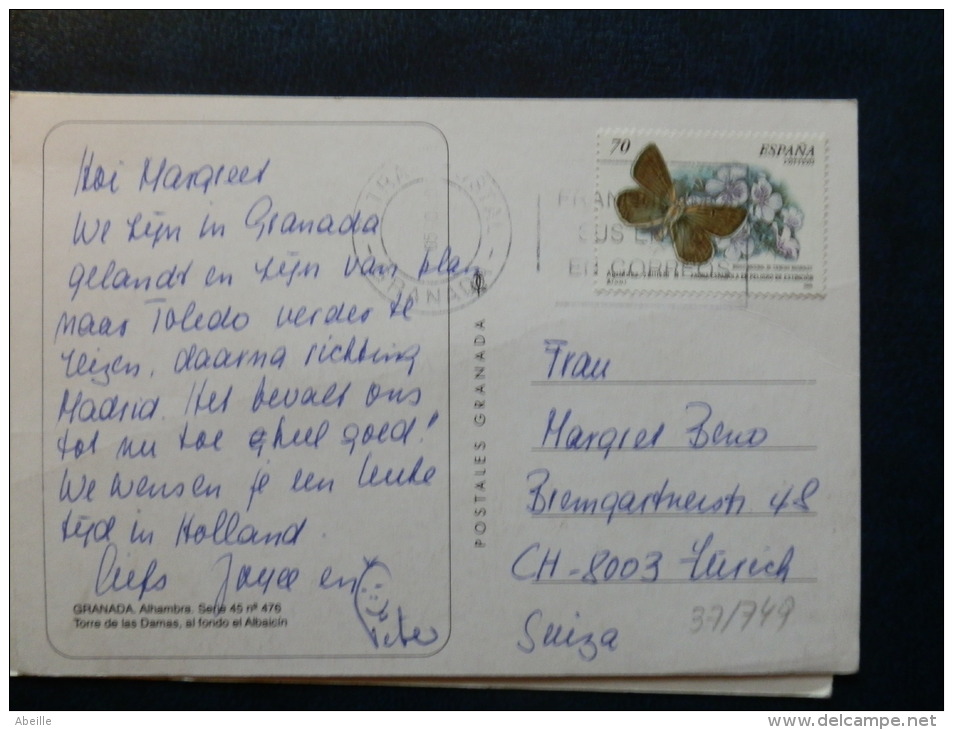 Hoi Margreet
We zijn in Granada
gelandt en zijn van plan
naar Toledo verder te
reizen, daarna richting
Madrid. Het bevalt ons
tot nu toe heel goed!
We wensen je een leuke
tijd in Holland.
Liefs Joyce en
Peter
GRANADA. Alhambra. Serie 45 nº 476
Torre de las Damas, al fondo el Albaicín
POSTALES GRANADA
GRANADA
70 ESPAÑA
CORREOS
EN CORREOS
Frau
Margret Beno
Bremgartnerstr 48
CH-8003 Zürich
Suiza
37/749
Abeille
http://www.delcampe.net